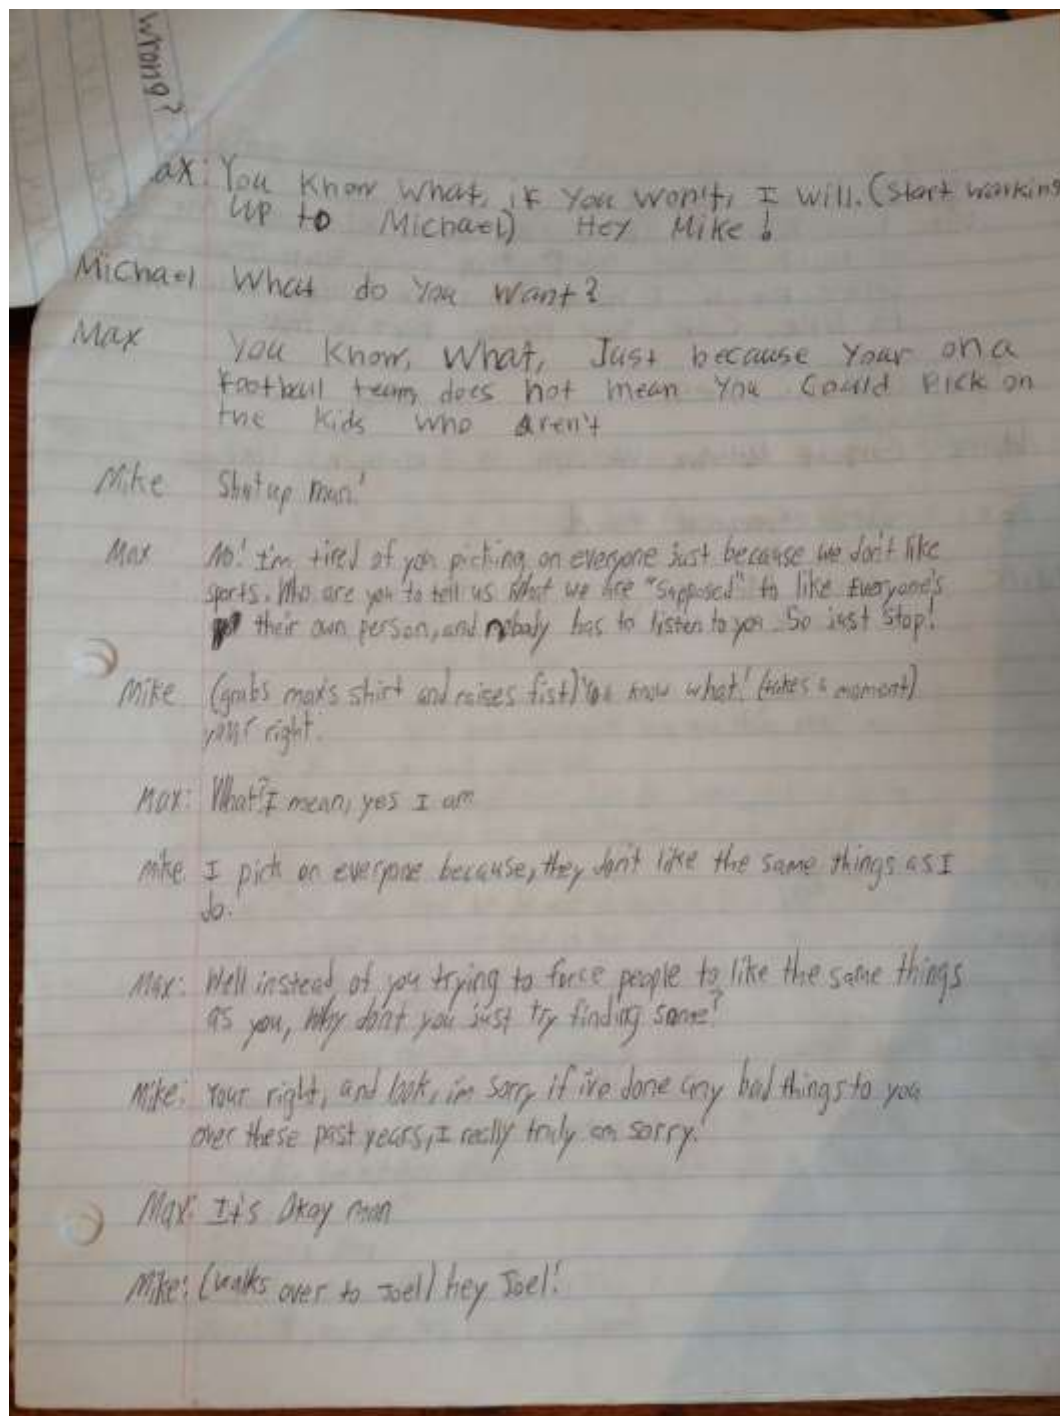 wrong?
ax: You Know What, if You Won't, I will. (Start walking
up to Michael) Hey Mike!
Michael What do You Want?
Max You Know, What, Just because Your on a
Football team, does not mean You Could Pick on
the Kids who aren't
Mike Shut up man!
Max No! I'm tired of you picking on everyone just because we don't like
sports. Who are you to tell us what we are "supposed" to like Everyone's
their own person, and nobody has to listen to you. So just stop!
Mike (grabs max's shirt and raises fist) You know what! (takes a moment)
your right.
Max: What? I mean, yes I am
Mike I pick on everyone because, they don't like the same things as I
do.
Max: Well instead of you trying to force people to like the same things
as you, Why don't you just try finding some?
Mike: Your right, and look, im sorry if ive done any bad things to you
over these past years, I really truly am sorry.
Max: It's Okay man
Mike: (walks over to Joel) hey Joel!